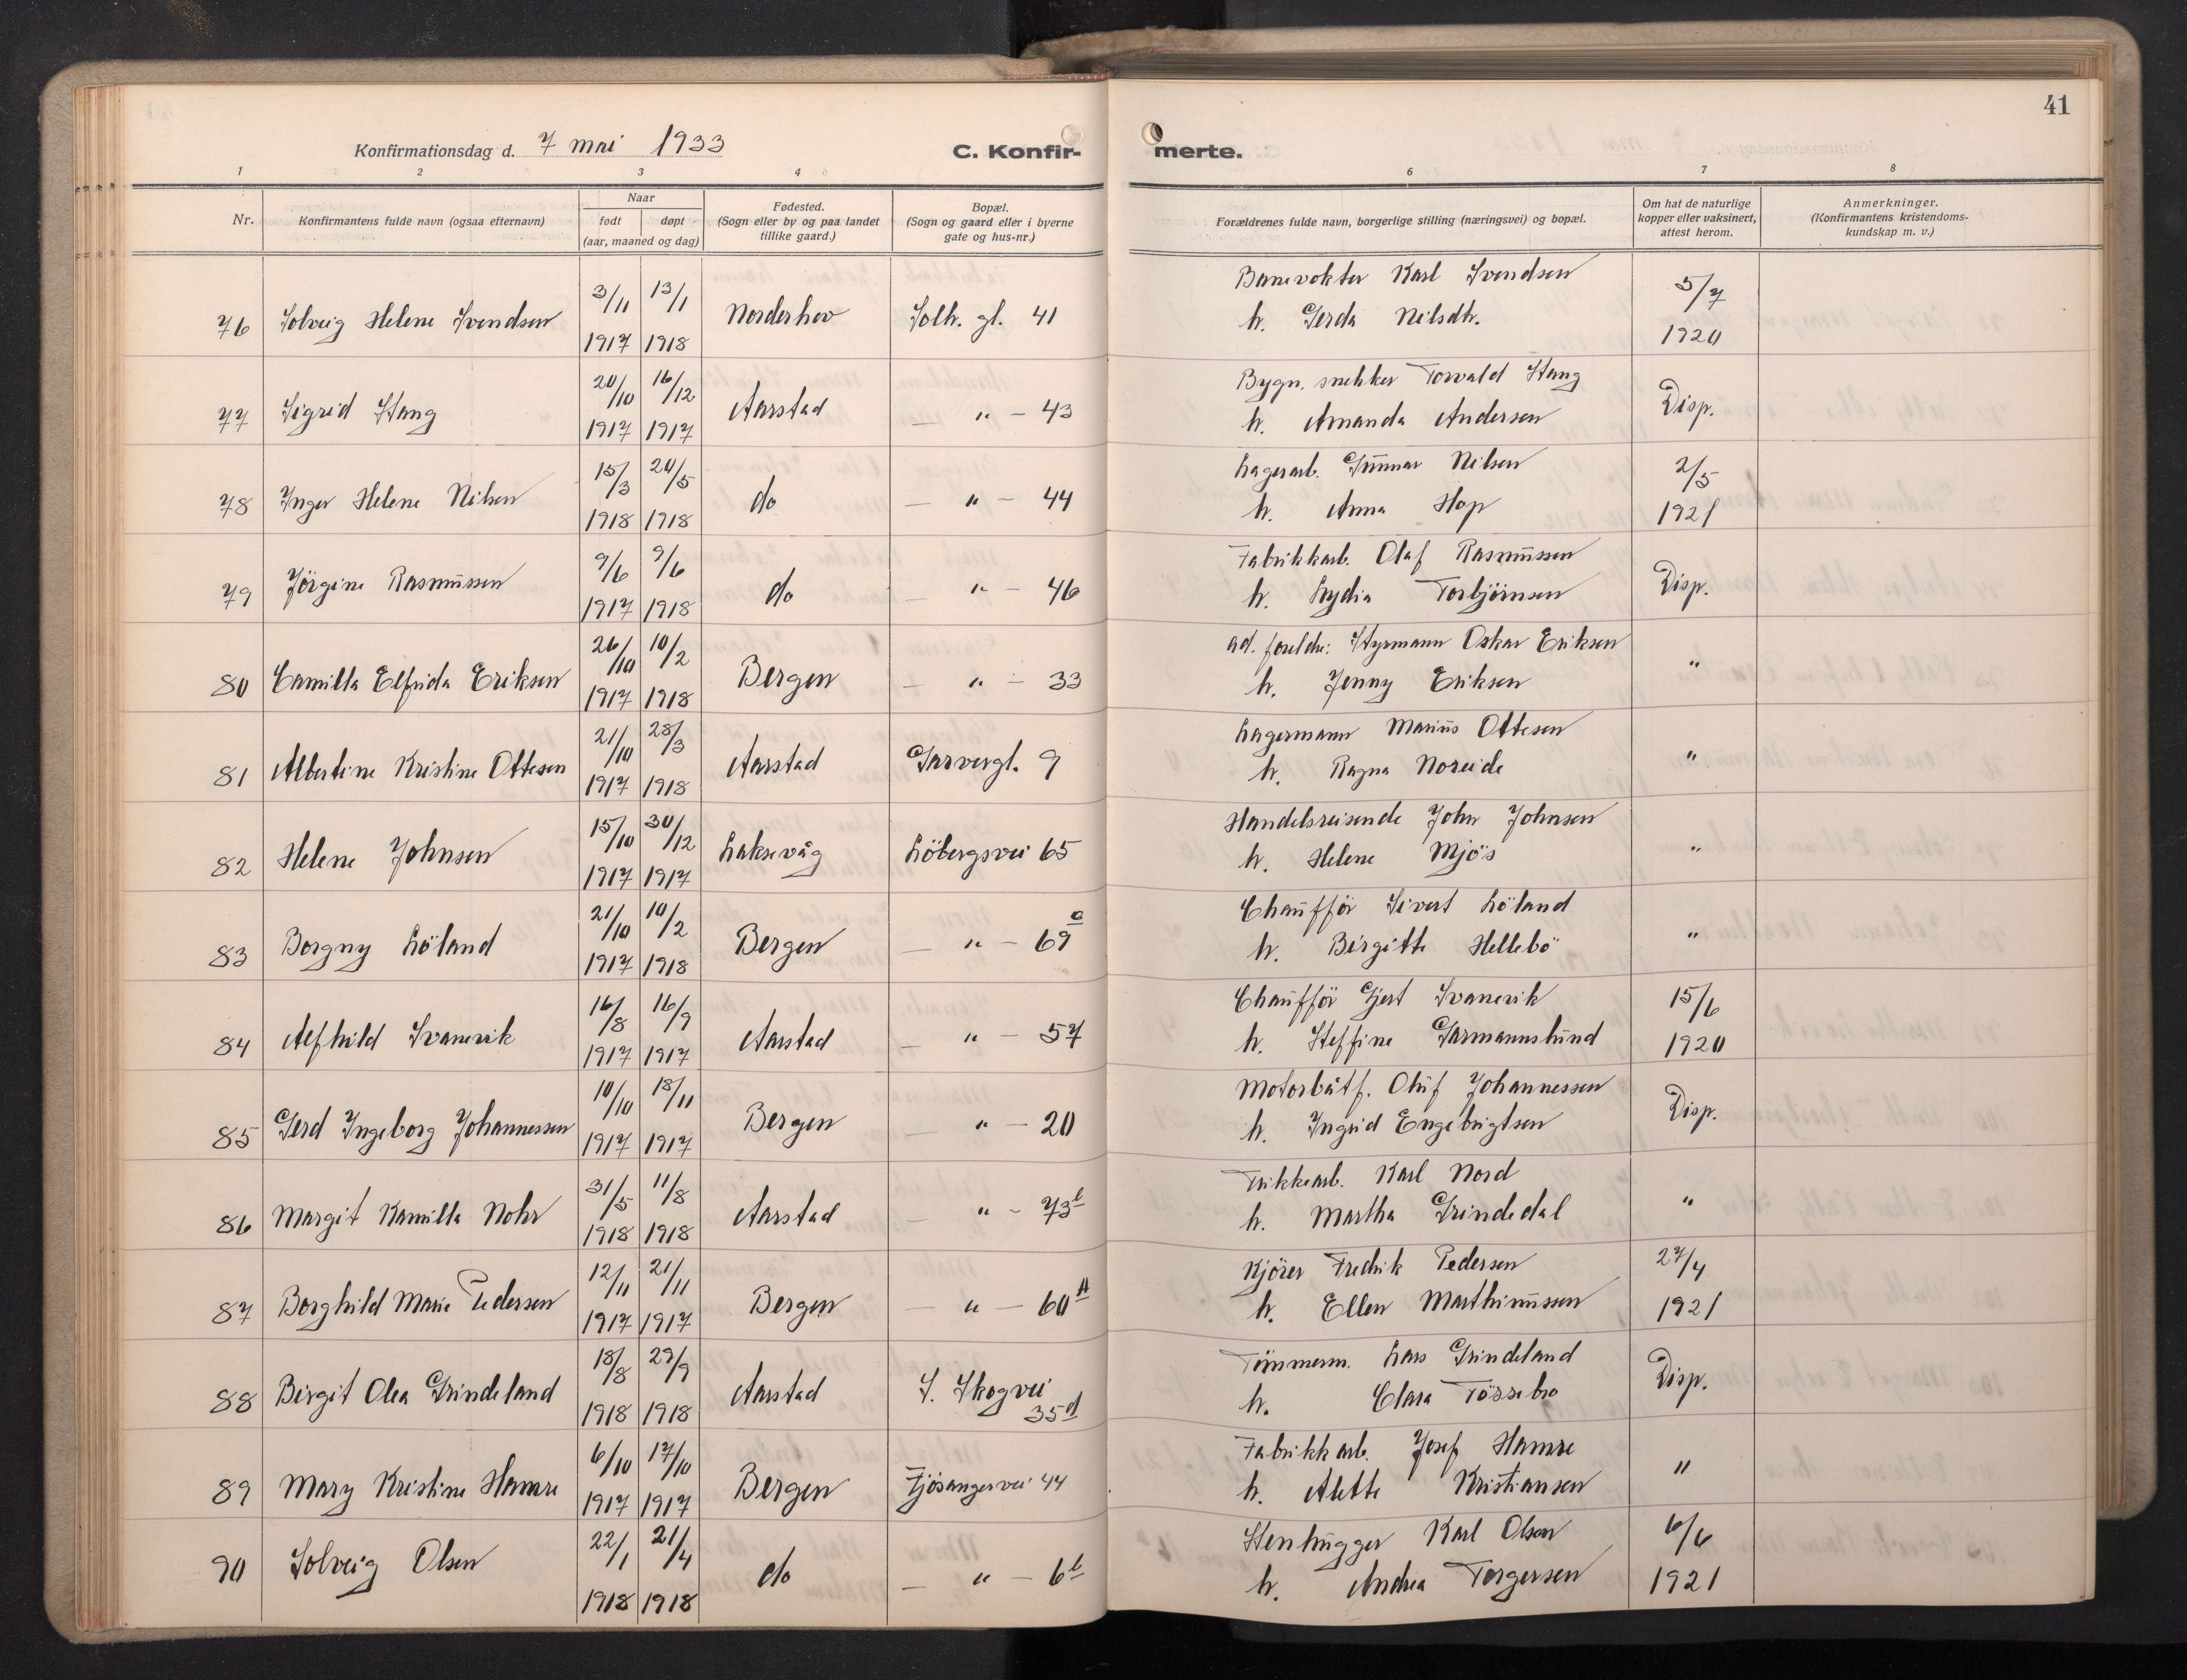 41
Konfirmationsdag d. 7 mai 1933
C. Konfir-
merte.
1 2 3 4 6 7 8
Nr.
Konfirmantens fulde navn (ogsaa efternavn)
Naar
født døpt
(aar, maaned og dag)
Fødested.
(Sogn eller by og paa landet
tillike gaard.)
Bopæl.
(Sogn og gaard eller i byerne
gate og hus-nr.)
Forældrenes fulde navn, borgerlige stilling (næringsvei) og bopæl.
Om hat de naturlige
kopper eller vaksinert,
attest herom.
Anmerkninger.
(Konfirmantens kristendoms-
kundskap m. v.)
3/11 13/1 Banevokter Karl Svendsen 5/7
76 Solveig Helene Svendsen Norderhov Solh. gl. 41 h. Gerda Nilsdtr.
1917 1918 1920
20/10 16/12 Bygn. snekker Torvald Stang
77 Sigrid Stang Aarstad — " — 43 h. Amanda Andersen Disp.
1917 1917
15/3 20/5 Lagerarb. Gunnar Nilsen 2/5
78 Inger Helene Nilsen do — " — 44 h. Anna Hop
1918 1918 1921
9/6 9/6 Fabrikkarb. Olaf Rasmussen
79 Jörgine Rasmussen do — " — 46 h. Lydia Torbjörnsen Disp.
1917 1918
26/10 10/2 ad. foreldre: Styrmann Oskar Eriksen
80 Camilla Elfrida Eriksen Bergen — " — 33 h. Jenny Eriksen "
1917 1918
21/10 28/3 Lagermann Marius Ottesen
81 Albertine Kristine Ottesen Aarstad Garvergt. 9 h. Ragna Noreide "
1917 1918
15/10 30/12 Handelsreisende John Johnsen
82 Helene Johnsen Laksevåg Löbergsvei 65 h. Helene Mjös "
1917 1917
21/10 10/2 Chaufför Sivert Löland
83 Borgny Löland Bergen — " — 69a h. Birgitte Hellebö "
1917 1918
16/8 16/9 Chaufför Gjert Svanevik 15/6
84 Alfhild Svanevik Aarstad — " — 57 h. Steffine Garmannslund
1917 1917 1920
10/10 18/11 Motorbåtf. Oluf Johannessen
85 Gerd Ingeborg Johannessen Bergen — " — 20 h. Ingrid Engebrigtsen Disp.
1917 1917
31/5 11/8 Trikkearb. Karl Nord
86 Margit Kamilla Nohr Aarstad — " — 73b h. Martha Grindedal "
1918 1918
12/11 21/11 Kjörer Fredrik Pedersen 27/4
87 Borghild Marie Pedersen Bergen — " — 60A h. Ellen Marthinussen
1917 1917 1921
18/8 29/9 Tömmerm. Lars Grindeland
88 Birgit Olea Grindeland Aarstad S. Skogvei h. Clara Tössebro Disp.
35d
1918 1918
6/10 17/10 Fabrikkarb. Josef Hamre
89 Mary Kristine Hamre Bergen Fjösangervei 44 h. Alette Kristiansen "
1917 1917
22/1 21/4 Stenhugger Karl Olsen 6/6
90 Solveig Olsen do — " — 6b h. Andrea Torgersen
1918 1918 1921